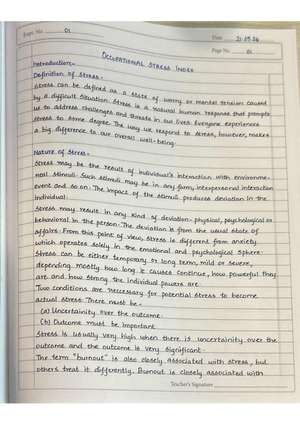 Expt. No. 01
Date 21.09.24
Page No. 01
OCCUPATIONAL STRESS INDEX
Introduction:-
Definition of Stress:-
Stress can be defined as a state of worry or mental tension caused
by a difficult situation. Stress is a natural human response that prompts
us to address challenges and threats in our lives. Everyone experiences
stress to some degree. The way we respond to stress, however, makes
a big difference to our overall well-being.
Nature of Stress:-
Stress may be the result of individual's interaction with environme-
ntal stimuli. Such stimuli may be in any form, interpersonal interaction
event and so on. The impact of the stimuli produces deviation in the
individual.
Stress may result in any kind of deviation- physical, psychological or
behavioral in the person. The deviation is from the usual state of
affairs. From this point of view, stress is different from anxiety
which operates solely in the emotional and psychological sphere.
Stress can be either temporary or long term, mild or severe,
depending mostly how long it causes continue, how powerful they
are and how strong the individual powers are.
Two conditions are necessary for potential stress to become
actual stress. There must be-
(a) Uncertainity over the outcome.
(b) Outcome must be important.
Stress is usually very high when there is uncertainity over the
outcome and the outcome is very significant.
The term "burnout" is also closely associated with stress, but
others treat it differently. Burnout is closely associated with
Teacher's Signature